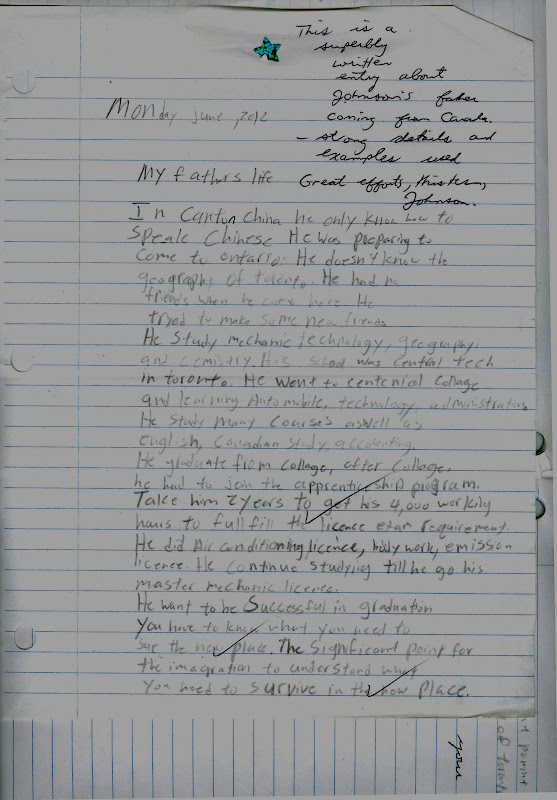 This is a
superbly
written
entry about
Johnson's father
coming from Canada.
- strong details and
examples used
Great efforts, this term,
Johnson.
Monday june, 2012
My fathurs life
In Canton China he only know how to
Speak Chinese He was preparing to
Come to ontario. He doesn't know the
geography of toronto. He had no
friends when he come here. He
tryed to make some new friends
He Study mechanic technology, geography,
and Cemistry. His School was Central tech
in toronto. He went to centenial collage
and learning Automobile, technology, administration,
He Study Many Courses aswell as
english, Canadian study, accounting,
He graduate from Collage, after Collage,
he had to join the apprentice ship program.
Take him 2 years to get his 4,000 working
hours to full fill the licence exam requirement.
He did Air conditioning licence, body work, emission
licence. He continue studying till he go his
master mechanic licence.
He want to be Successful in graduation
You have to know what you need to
the new place. The Significant point for
the imagration to understand what
You need to survive in the new place.
your